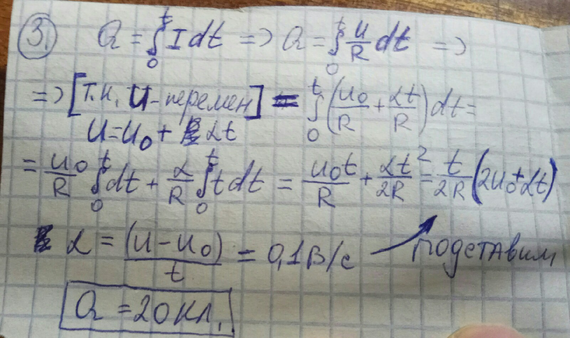 3. Q = ∫₀ᵗ I dt => Q = ∫₀ᵗ U/R dt =>
=> [т.к. U - перемен] = ∫₀ᵗ (U₀/R + αt/R) dt =
U = U₀ + αt
= U₀/R ∫₀ᵗ dt + α/R ∫₀ᵗ t dt = U₀t/R + αt²/2R = t/2R (2U₀ + αt)
α = (U - U₀)/t = 0,1 В/с подставим
Q = 20 Кл.